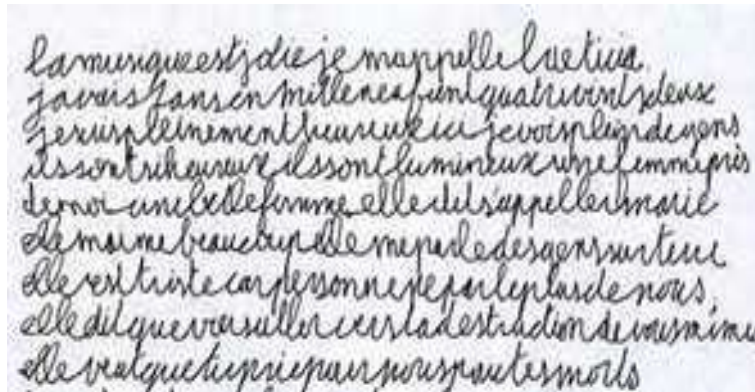 lamusiqueestjoliejemappelleLaeticia
javais7ansenmilleneufcentquatrevintdeux
jesuispleinementheureuseicijevoispleindegens
ilssonttrèheureuxilssontlumineuxunefemmeprès
demoiunebellefemmeelleditsappellermarie
ellemaimebeaucoupellemeparledesgenssurterre
elleesttristecarpersonneneparleplusdenous
elleditquevousallerversladestructiondevousmême
elleveutquetupriepournouspourtesmorts